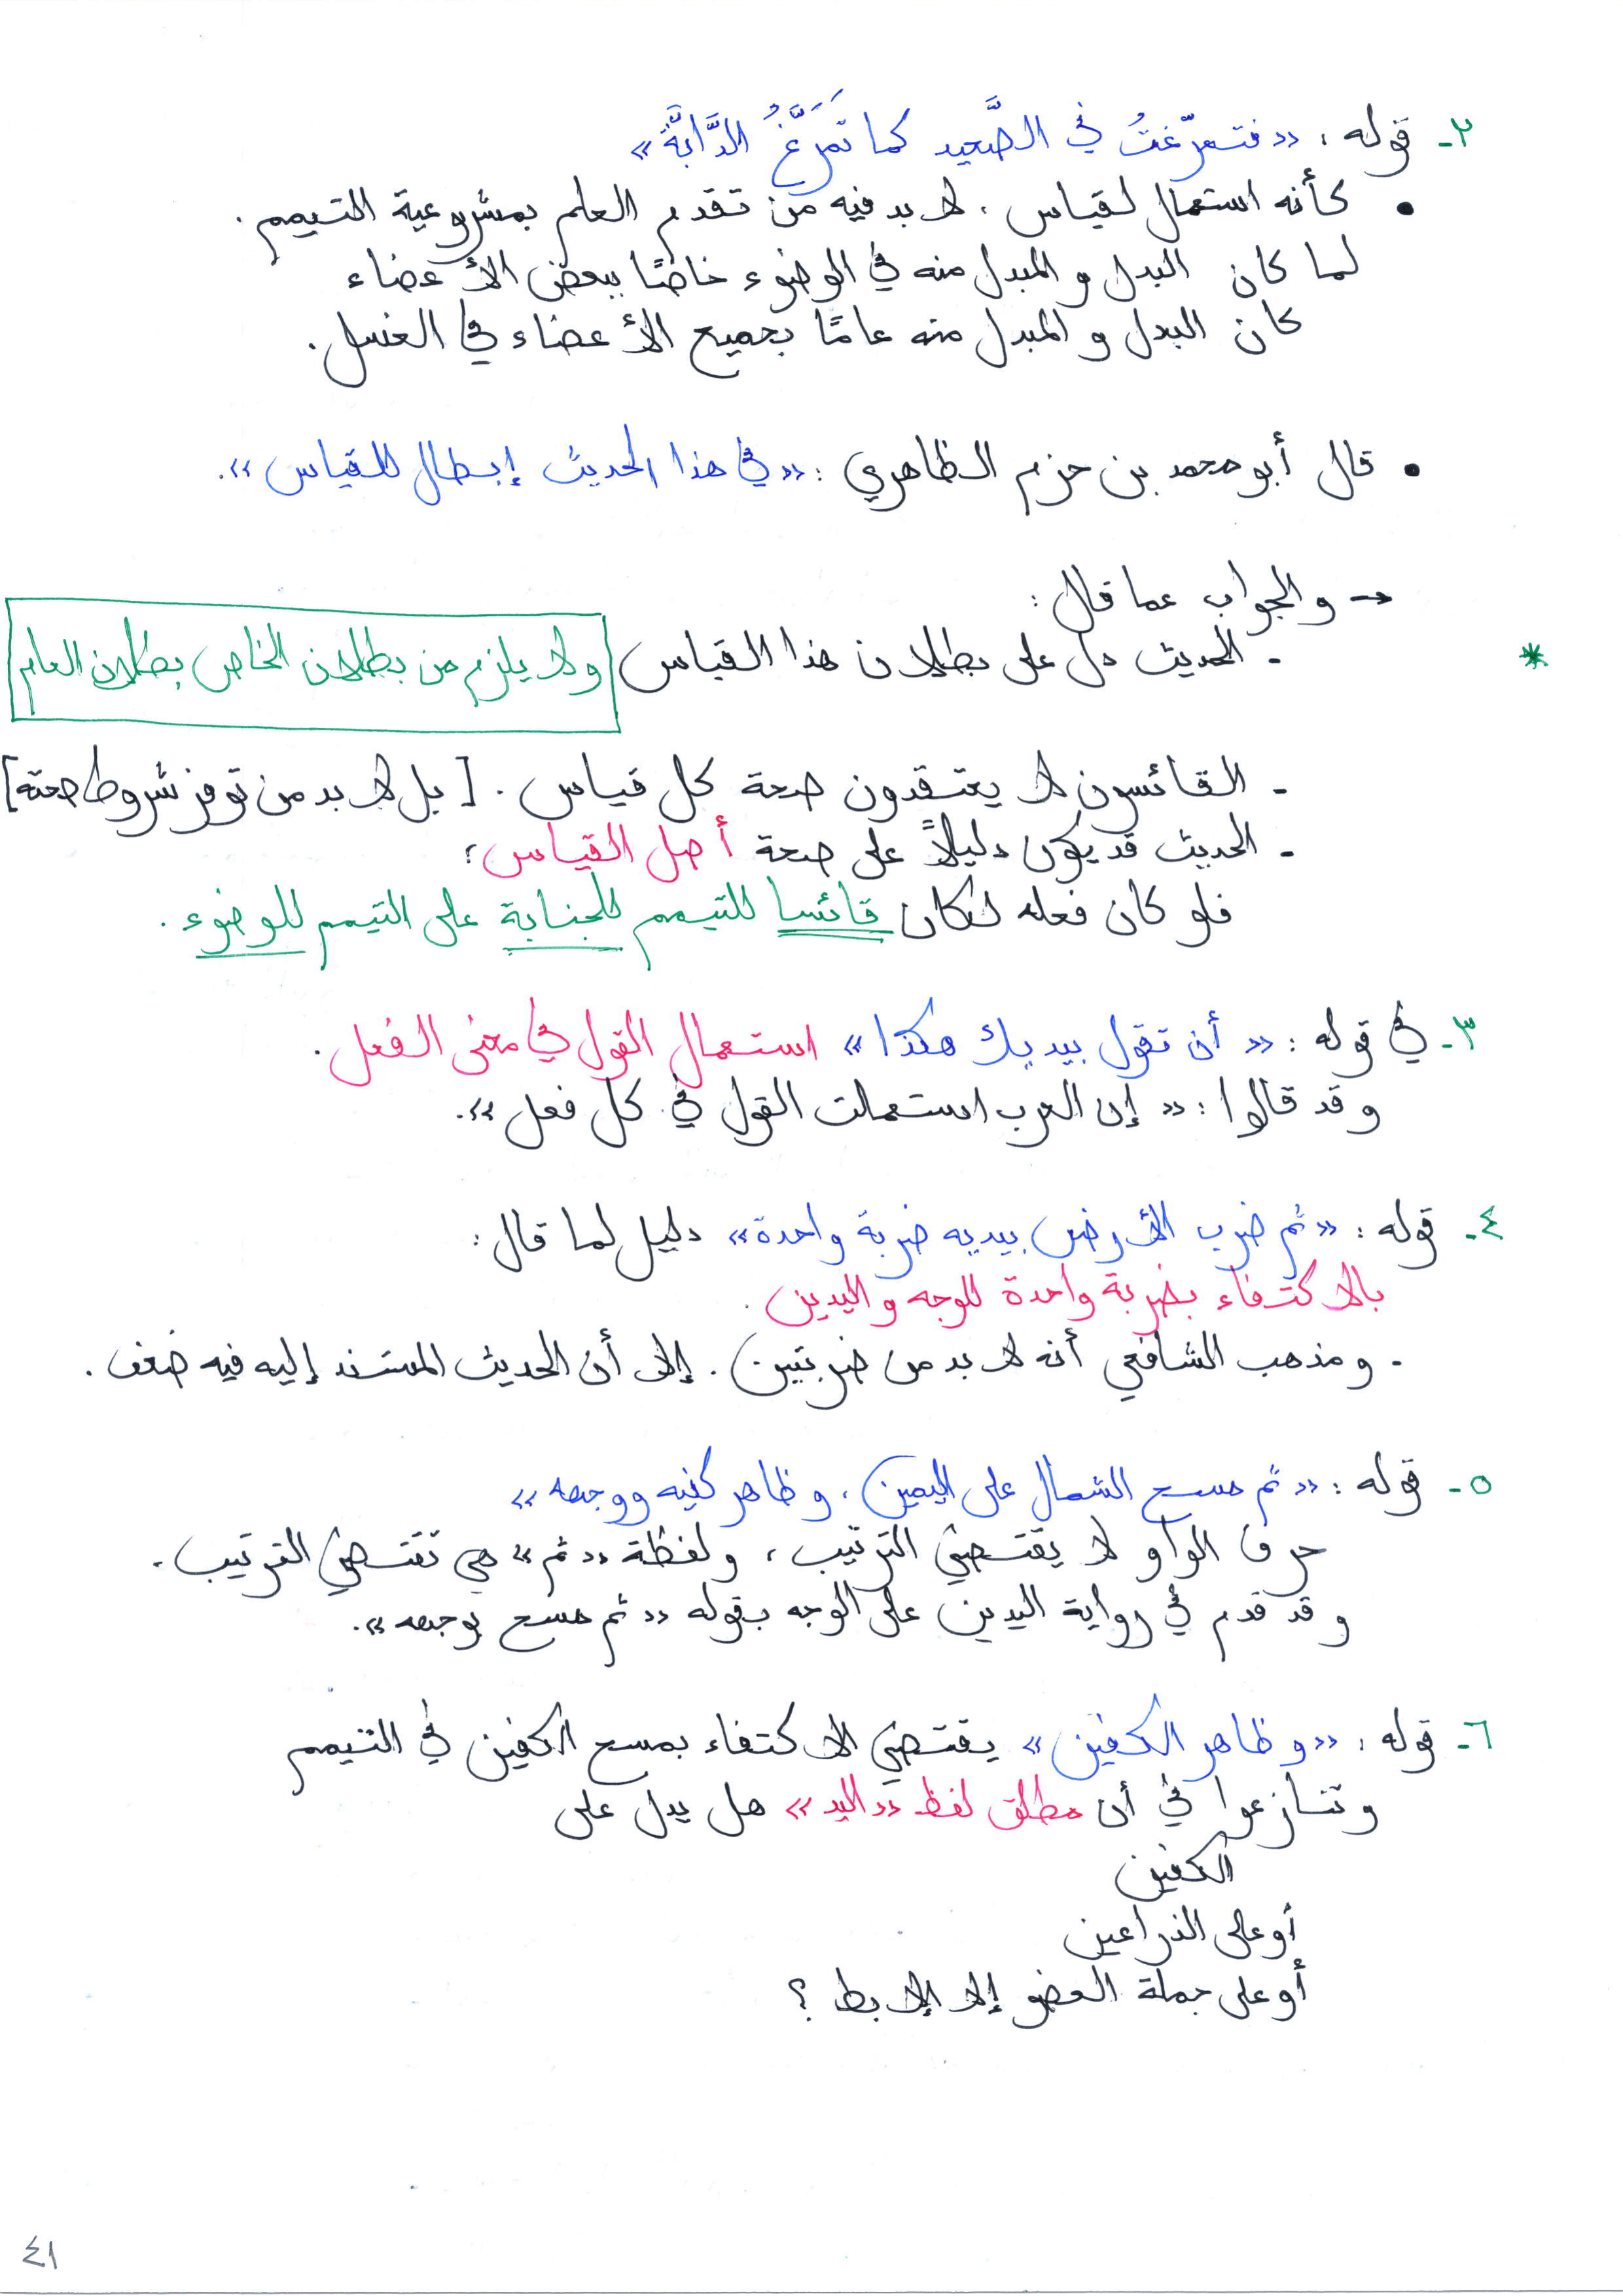 ٢- قوله : «فتمرّغتُ في الصَّعيد كما تَمَرَّغُ الدَّابَّةُ»
• كأنه استعمال لقياس ، لا بد فيه من تقدم العلم بمشروعية التيمم .
لما كان البدل والمبدل منه في الوضوء خاصًا ببعض الأعضاء
كان البدل والمبدل منه عامًا بجميع الأعضاء في الغسل .
• قال أبو محمد بن حزم الظاهري : «في هذا الحديث إبطال للقياس» .
→ والجواب عما قال :
* - الحديث دل على بطلان هذا القياس ولا يلزم من بطلان الخاص بطلان العام
- القائسون لا يعتقدون صحة كل قياس . [بل لا بد من توفر شروط صحته]
- الحديث قد يكون دليلاً على صحة أصل القياس ؛
فلو كان فعله لكان قائسا للتيمم للجنابة على التيمم للوضوء .
٣- في قوله : «أن تقول بيديك هكذا» استعمال القول في معنى الفعل .
وقد قالوا : «إن العرب استعملت القول في كل فعل» .
٤- قوله : «ثم ضرب الأرض بيديه ضربة واحدة» دليل لما قال :
بالاكتفاء بضربة واحدة للوجه واليدين .
- ومذهب الشافعي أنه لا بد من ضربتين . إلا أن الحديث المستند إليه فيه ضعف .
٥- قوله : «ثم مسح الشمال على اليمين ، وظاهر كفيه ووجهه»
حرف الواو لا يقتضي الترتيب ، ولفظة «ثم» هي تقتضي الترتيب .
وقد قدم في رواية اليدين على الوجه بقوله «ثم مسح بوجهه» .
٦- قوله : «وظاهر الكفين» يقتضي الاكتفاء بمسح الكفين في التيمم
وتنازعوا في أن مطلق لفظ «اليد» هل يدل على
الكفين
أو على الذراعين
أو على جملة العضو إلى الإبط ؟
٤١